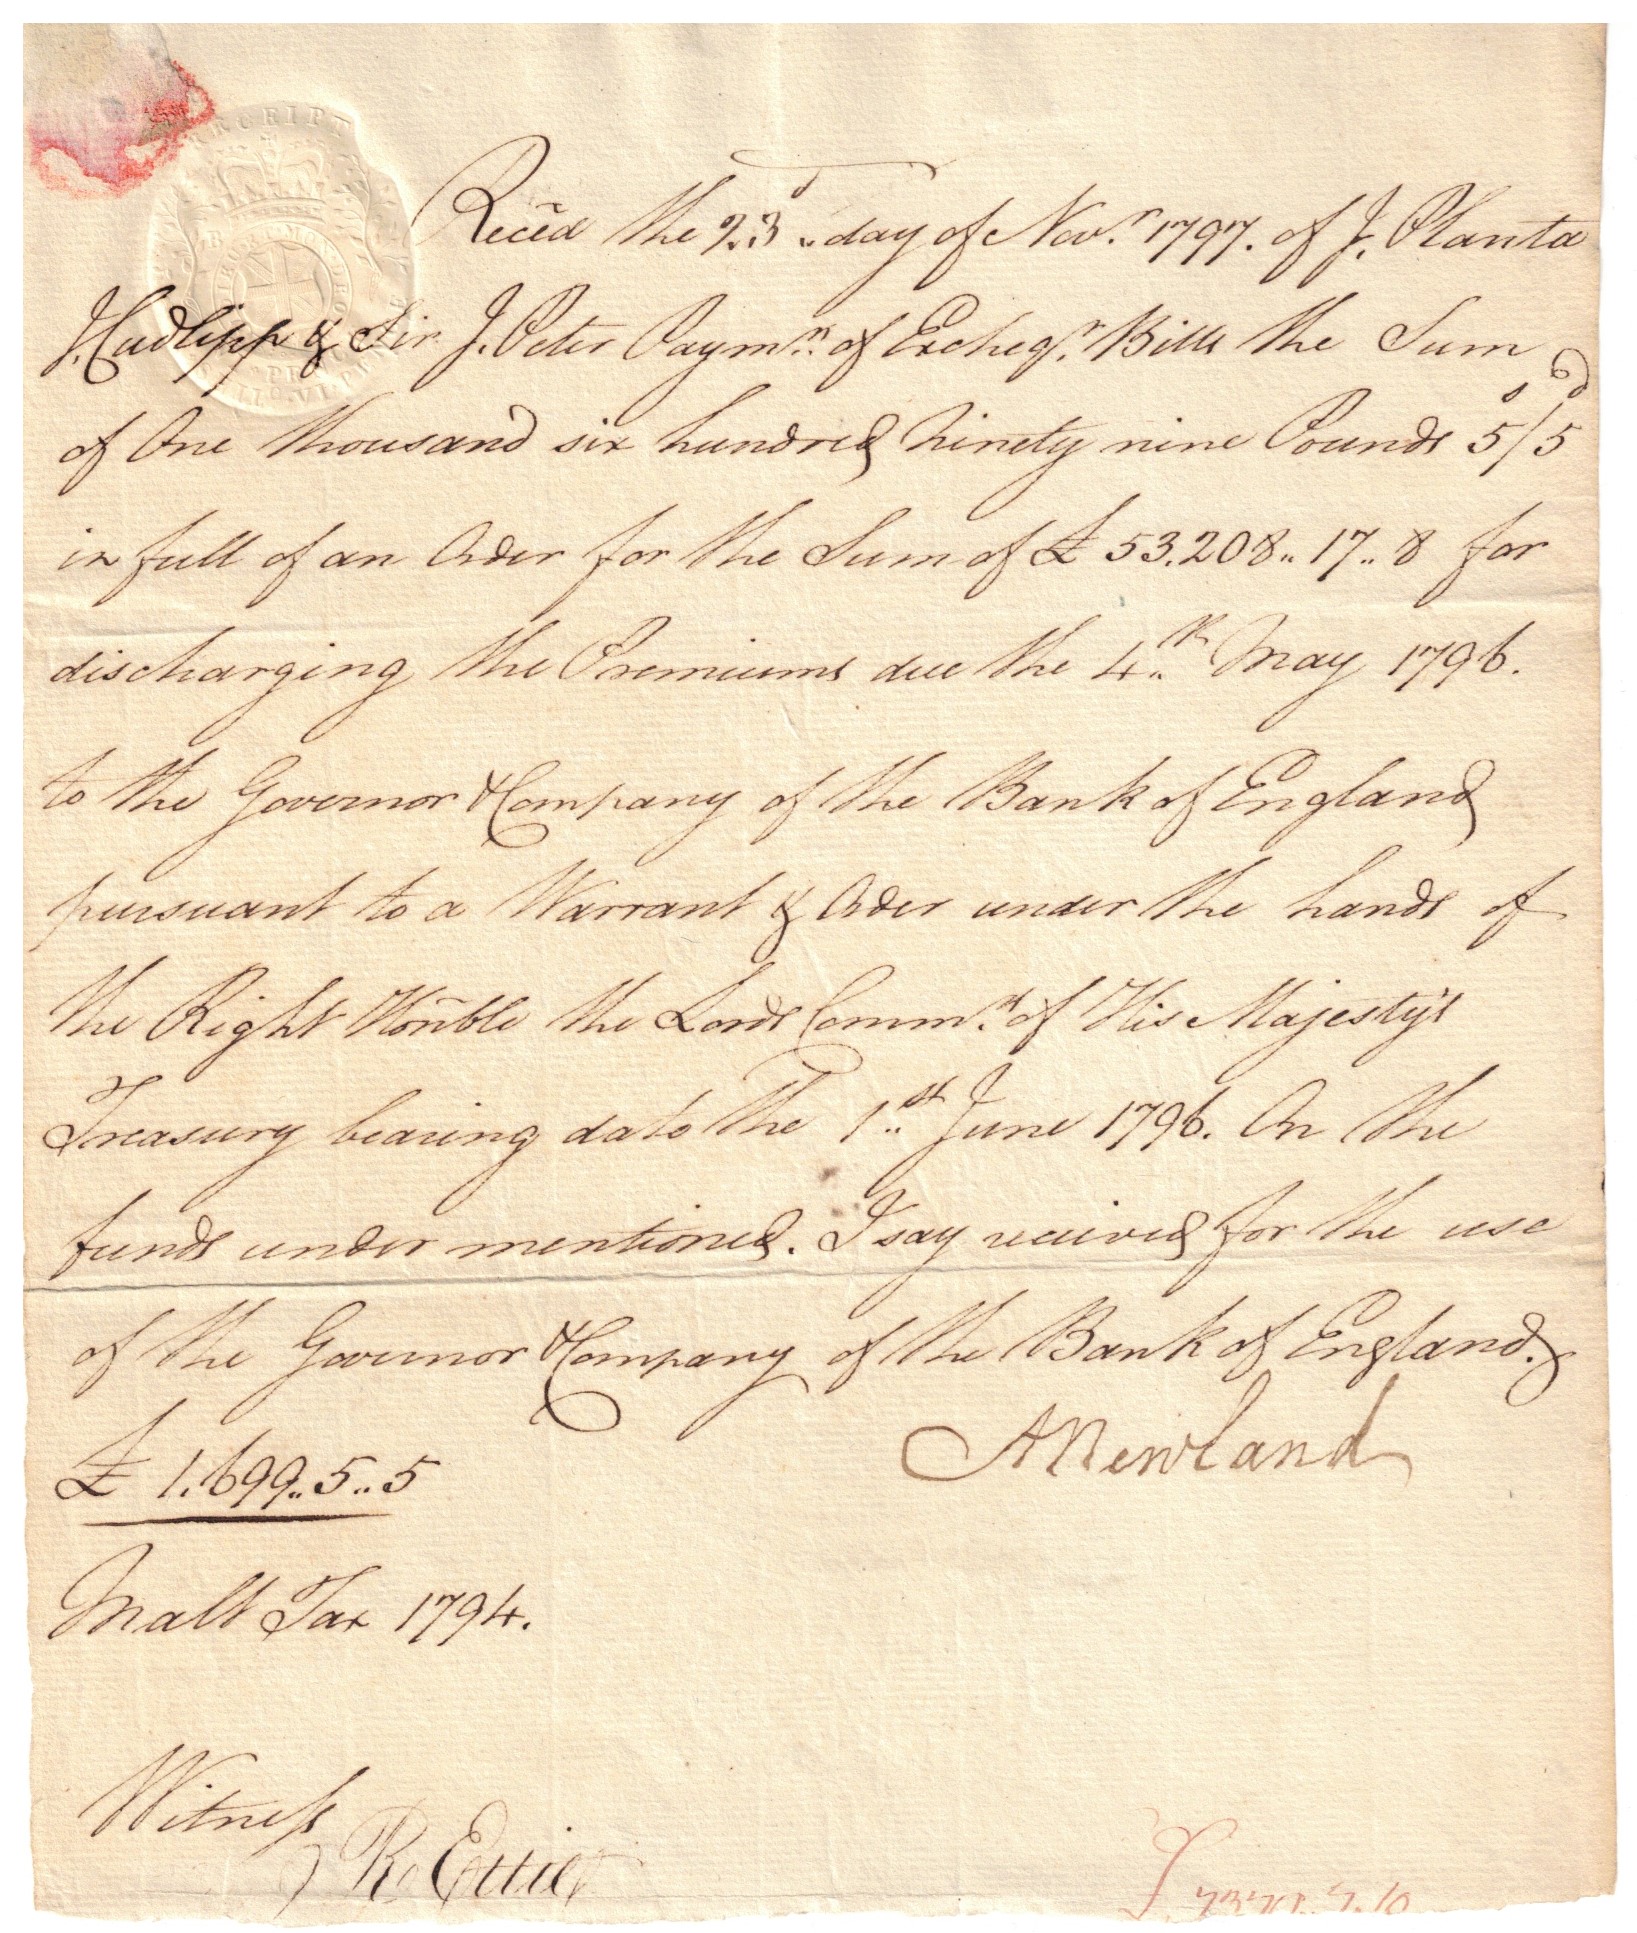 RECEIPT
Recēd the 23d day of Novr 1797. of J. Planta
J. Cudlipp & Sir J. Peter Paymrs of Excheqr Bills the Sum
of One thousand six hundred Ninety nine Pounds 5s/5d
in full of an Order for the Sum of £ 53.208..17..8 for
discharging the Premiums due the 4th May 1796.
to the Governor & Company of the Bank of England
pursuant to a Warrant & Order under the hands of
the Right Hon̄ble the Lords Commrs of His Majesty's
Treasury bearing date the 1st June 1796. On the
funds under mentioned. I say received for the use
of the Governor & Company of the Bank of England.
A Newland
£ 1.699..5..5
Malt Tax 1794.
Witness